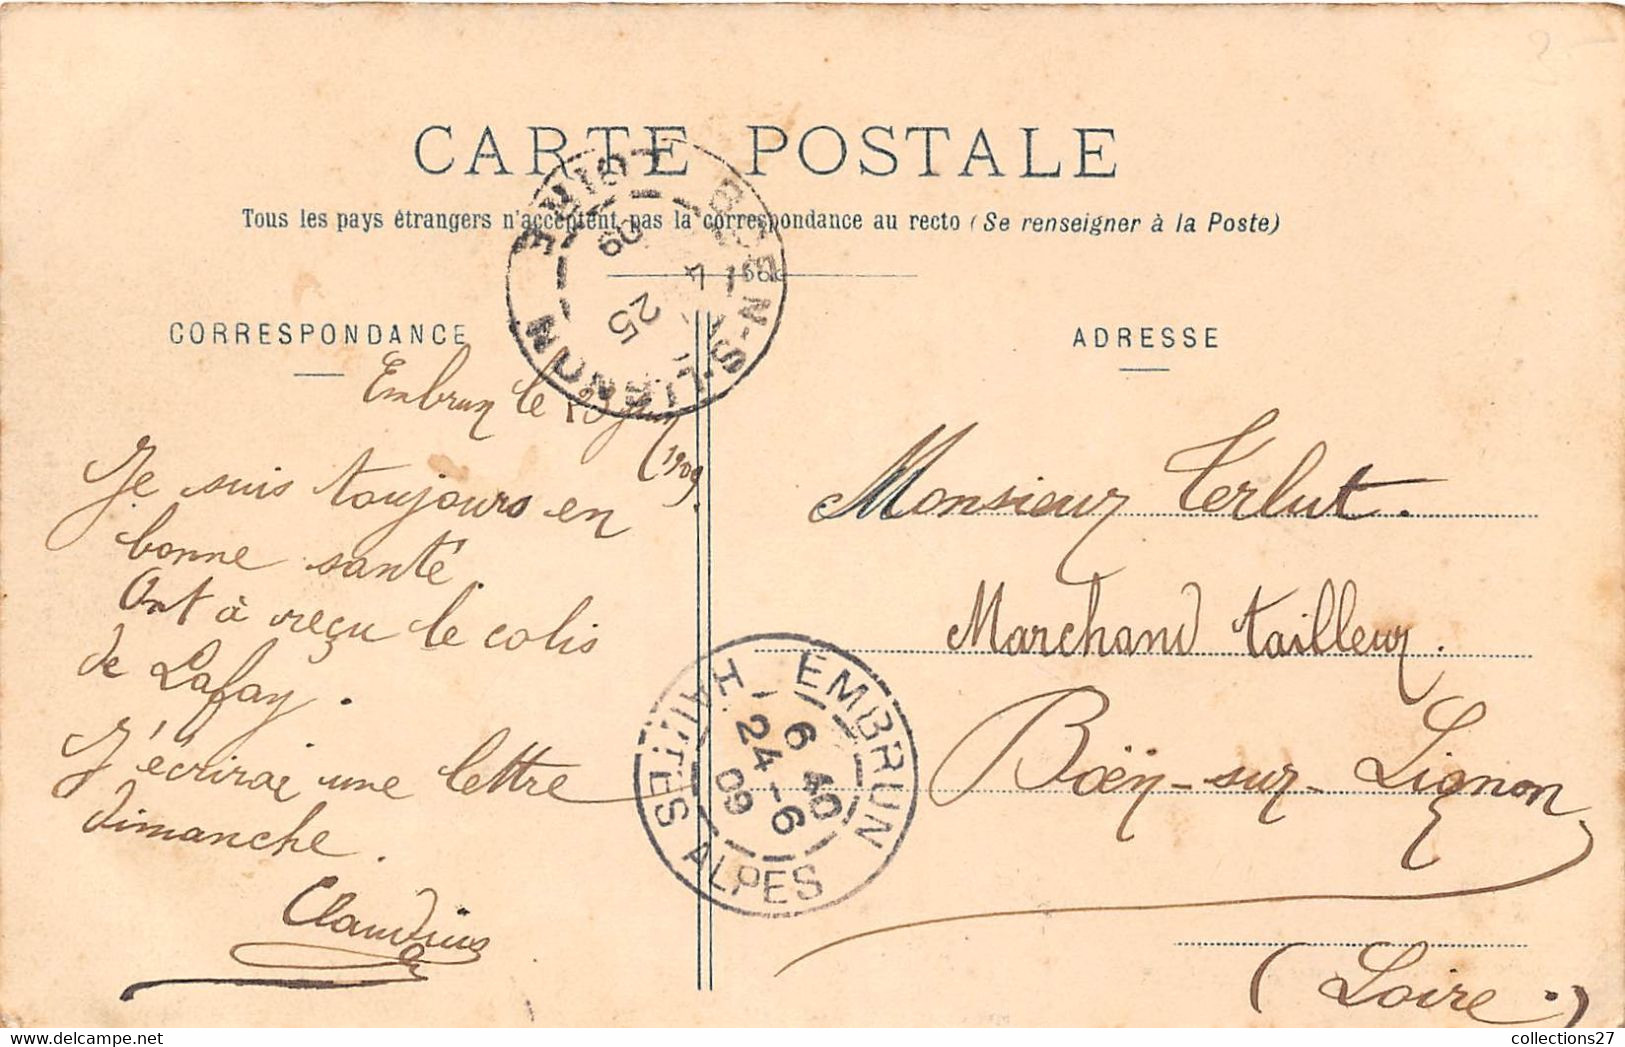 CARTE POSTALE
Tous les pays étrangers n'acceptent pas la correspondance au recto (Se renseigner à la Poste)
CORRESPONDANCE
Embrun le 23 Juin
1909.
Je suis toujours en
bonne santé.
Ont à reçu le colis
de Lafay.
J'écrirai une lettre
dimanche.
Claudius
ADRESSE
Monsieur Terlut.
Marchand tailleur.
Boën-sur-Lignon
(Loire.)
BOEN-S-LIGNON
LOIRE
25
09
EMBRUN
6 40
24-6
09
HAUTES ALPES
3-
collections27